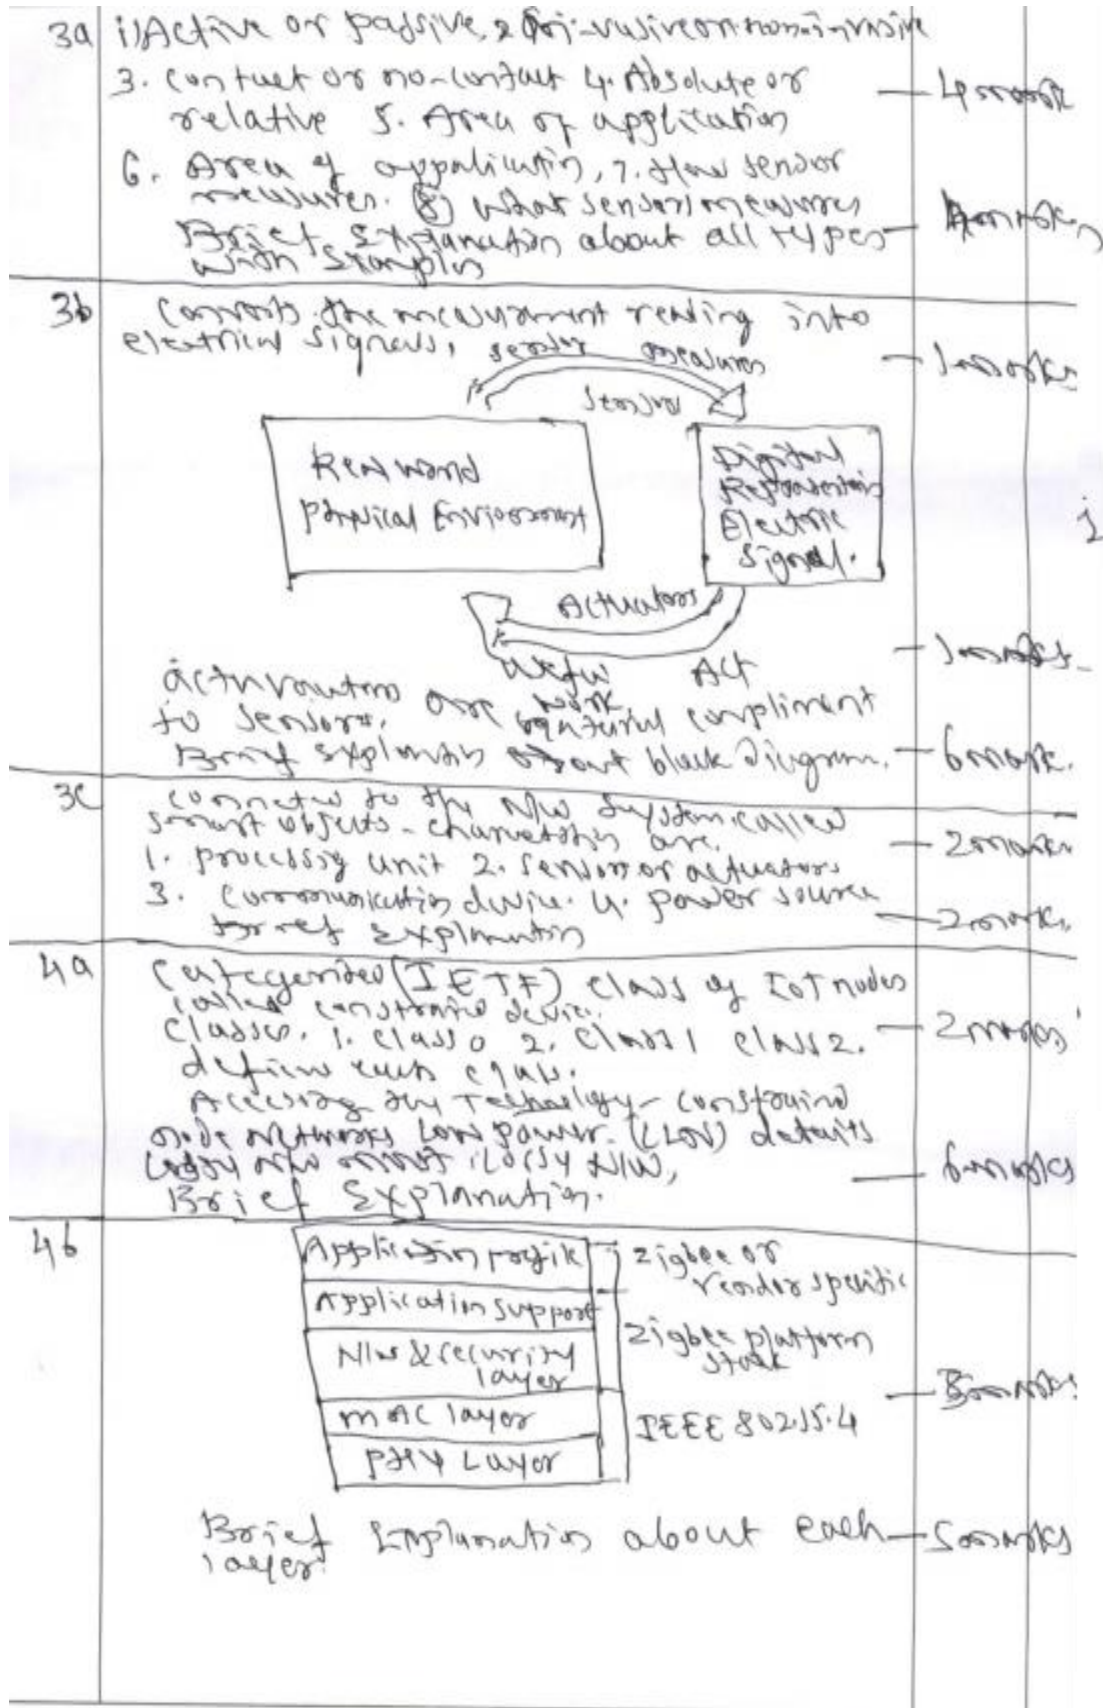 3a i) Active or passive, 2 invasive or non-invasive
3. contact or no-contact 4. Absolute or
relative 5. Area of application
— 4 mark
6. Area of application, 7. How sensor
measures. (8) what sensors measures
Brief Explanation about all types
with Examples
— 4 marks
3b Converts the measurement reading into
electrical signals, sensor measures
— 1 marks
Sensors
Real world
Physical Environment
Digital
Representation
Electric
Signal.
Actuators
Useful Act
work
— 1 marks
actuators are natural compliment
to sensors.
Brief explanation about block diagram. — 6 mark.
3c connected to the N/w System called
smart objects - characteristics are.
— 2 marks
1. processing unit 2. sensor or actuators
3. Communication device. 4. power source
Brief Explanation
— 2 marks
4a Categorized (IETF) class of IoT nodes
called constraine device.
classes. 1. class 0 2. class 1 class 2.
— 2 marks
define each class.
Technology - constraind
node networks Low power. (LLN)
N/W,
Brief Explanation.
— 6 marks
4b Application profile
zigbee or
vendor specific
Application Support
N/w & security
layer
zigbee platform
stack
MAC layer
PHY Layer
IEEE 802.15.4
— 5 marks
Brief Explanation about each — 5 marks
layer.